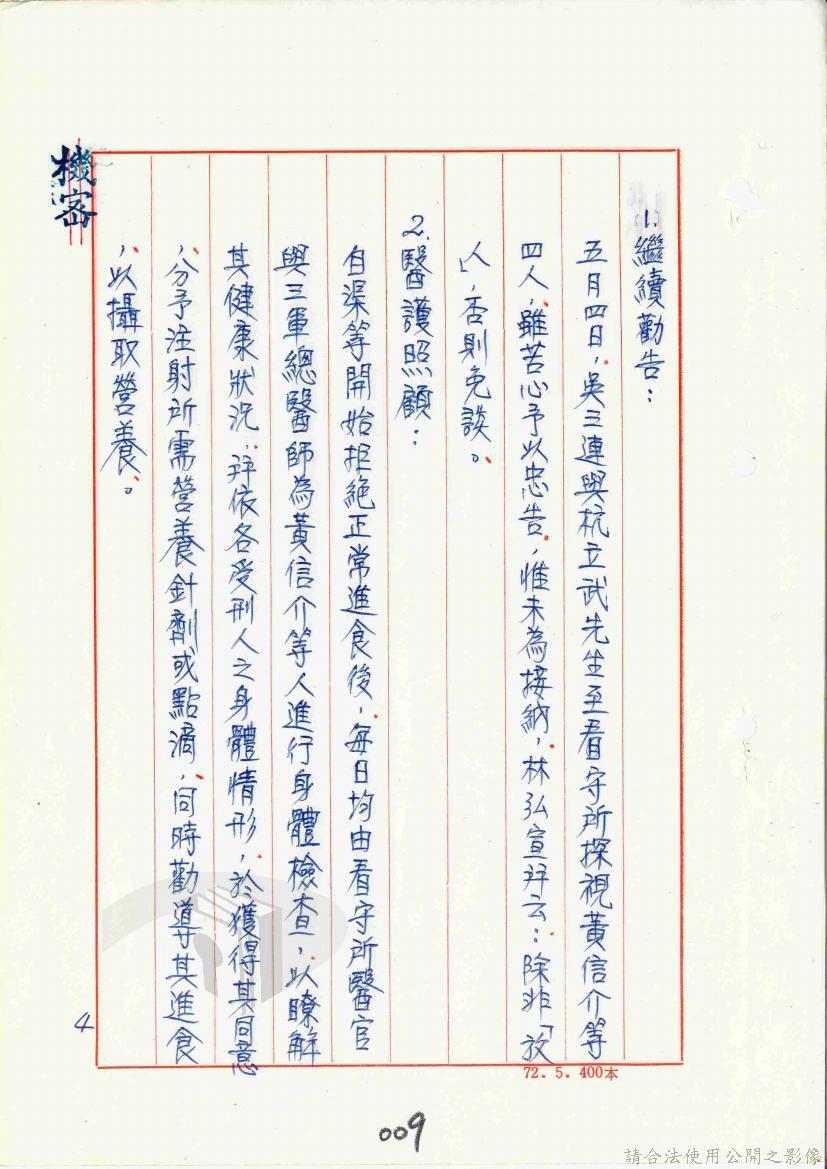 機密
1.繼續勸告：
五月四日，吳三連與杭立武先生至看守所探視黃信介等
四人，雖苦心予以忠告，惟未為接納，林弘宣并云：除非「放
人」，否則免談。
2.醫護照顧：
自渠等開始拒絕正常進食後，每日均由看守所醫官
與三軍總醫師為黃信介等人進行身體檢查，以瞭解
其健康狀況，并依各受刑人之身體情形，於獲得其同意
，分予注射所需營養針劑或點滴，同時勸導其進食
，以攝取營養。
4
72. 5. 400本
009
請合法使用公開之影像